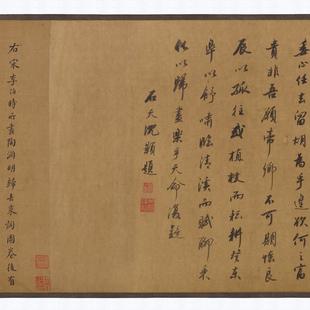 委心任去留胡為乎遑欲何之富
貴非吾願帝鄉不可期懷良
辰以孤往或植杖而耘耔登東
皐以舒嘯臨清流而賦聊乘
化以歸盡樂乎天命復奚疑
石天沈顥題
右宋李伯時所畫陶淵明歸去來詞圖卷後有